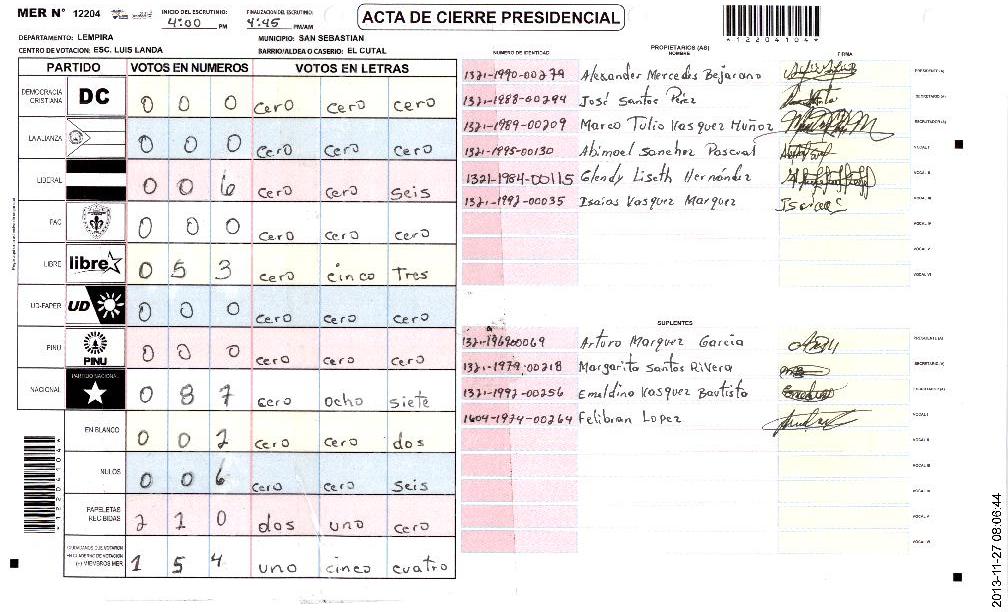 MER N° 12204
INICIO DEL ESCRUTINIO: 4:00 PM
FINALIZACION DEL ESCRUTINIO: 4:45 PM/AM
ACTA DE CIERRE PRESIDENCIAL
*12204104*
DEPARTAMENTO: LEMPIRA
MUNICIPIO: SAN SEBASTIAN
CENTRO DE VOTACION: ESC. LUIS LANDA
BARRIO/ALDEA O CASERIO: EL CUTAL
PARTIDO VOTOS EN NUMEROS VOTOS EN LETRAS
DEMOCRACIA CRISTIANA DC 0 0 0 cero cero cero
LA ALIANZA 0 0 0 cero cero cero
LIBERAL 0 0 6 cero cero seis
PAC 0 0 0 cero cero cero
LIBRE libre 0 5 3 cero cinco Tres
UD-FAPER UD 0 0 0 cero cero cero
PINU PINU 0 0 0 cero cero cero
NACIONAL PARTIDO NACIONAL 0 8 7 cero ocho siete
EN BLANCO 0 0 2 cero cero dos
NULOS 0 0 6 cero cero seis
PAPELETAS RECIBIDAS 2 1 0 dos uno cero
CIUDADANOS QUE VOTARON EN CUADERNO DE VOTACION (+) MIEMBROS MER 1 5 4 uno cinco cuatro
NUMERO DE IDENTIDAD PROPIETARIOS (AS) NOMBRE FIRMA
1321-1990-00279 Alexander Mercedes Bejarano PRESIDENTE (A)
1321-1988-00294 José Santos Pérez SECRETARIO (A)
1321-1989-00209 Marco Tulio Vasquez Muñoz ESCRUTADOR (A)
1321-1995-00130 Abimael Sanchez Pascual VOCAL I
1321-1984-00115 Glendy Liseth Hernández VOCAL II
1321-1992-00035 Isaias Vasquez Marquez VOCAL III
VOCAL IV
VOCAL V
VOCAL VI
SUPLENTES
1321-1969-00069 Arturo Marquez Garcia PRESIDENTE (A)
1321-1979-00218 Margarita Santos Rivera SECRETARIO (A)
1321-1992-00256 Emeldino Vasquez Bautista ESCRUTADOR (A)
1604-1974-00264 Felibran Lopez VOCAL I
VOCAL II
VOCAL III
VOCAL IV
VOCAL V
VOCAL VI
2013-11-27 08:06:44